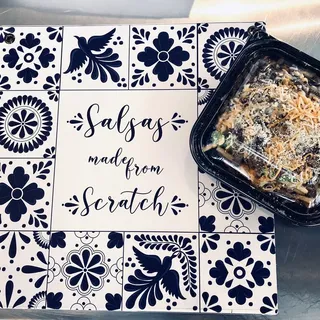 Salsas
made from
Scratch